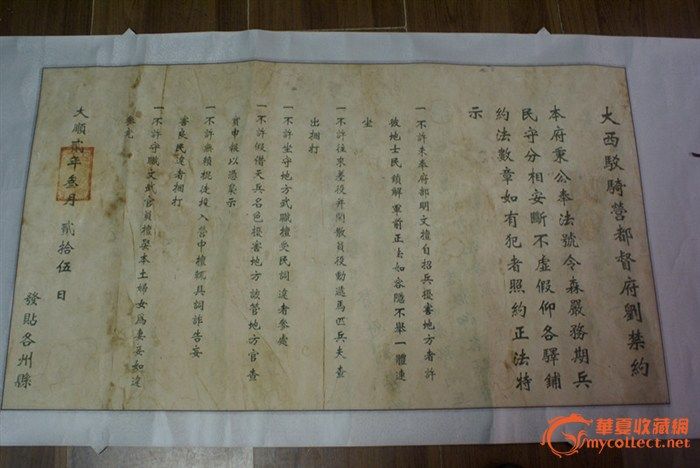 大西駁騎營都督府劉禁約
本府秉公奉法號令森嚴務期兵
民守分相安斷不虛假仰各驛鋪
約法數章如有犯者照約正法特
示
一不許未奉府部明文擅自招兵擾害地方者許
彼地士民鎖解軍前正法如容隱不舉一體連
坐
一不許往來差役并閒散員役動逃馬匹兵夫查
出捆打
一不許坐守地方武職擅受民詞違者參處
一不許假借天兵名色擾害地方該管地方官查
實申報以憑梟示
一不許無賴棍徒投入營中擅輒具詞詐告妄
害良民違者捆打
一不許守職文武官員擅娶本土婦女為妻妾如違
參究
大順貳年叁月 貳拾伍 日
發貼各州縣
華夏收藏網
mycollect.net